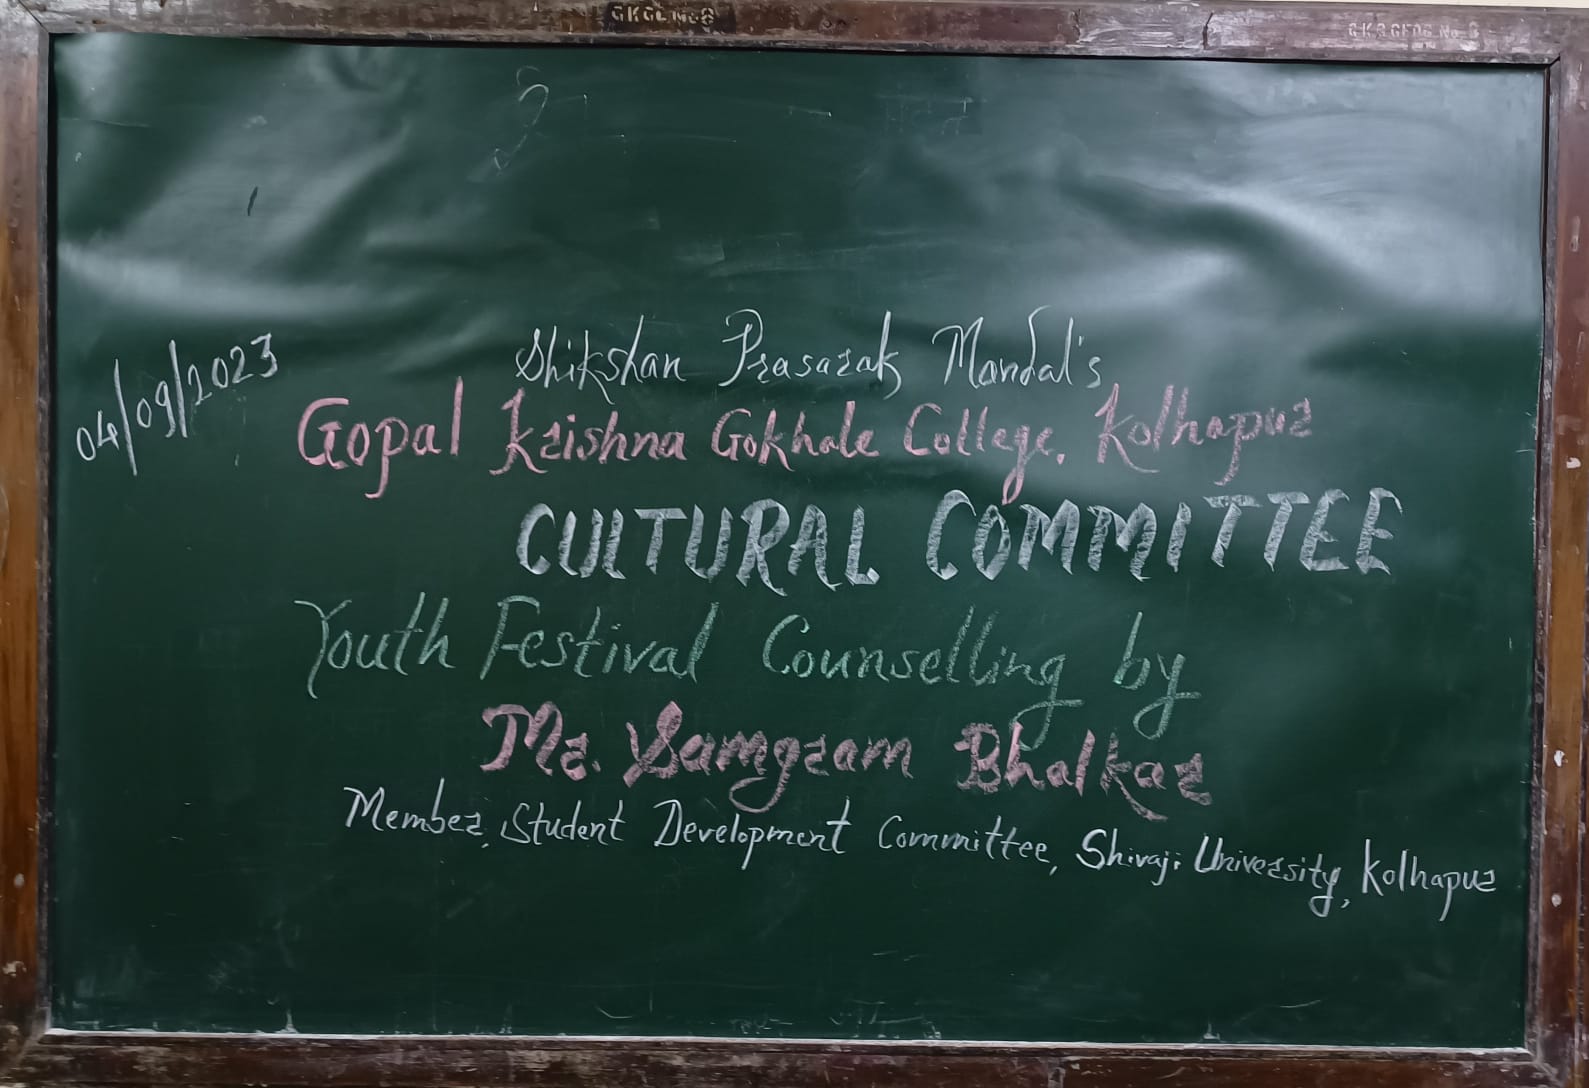 GKGC No 8
04/09/2023
Shikshan Prasarak Mandal's
Gopal Krishna Gokhale College, Kolhapur
CULTURAL COMMITTEE
Youth Festival Counselling by
Mr. Samgram Bhalkar
Member, Student Development Committee, Shivaji University, Kolhapur